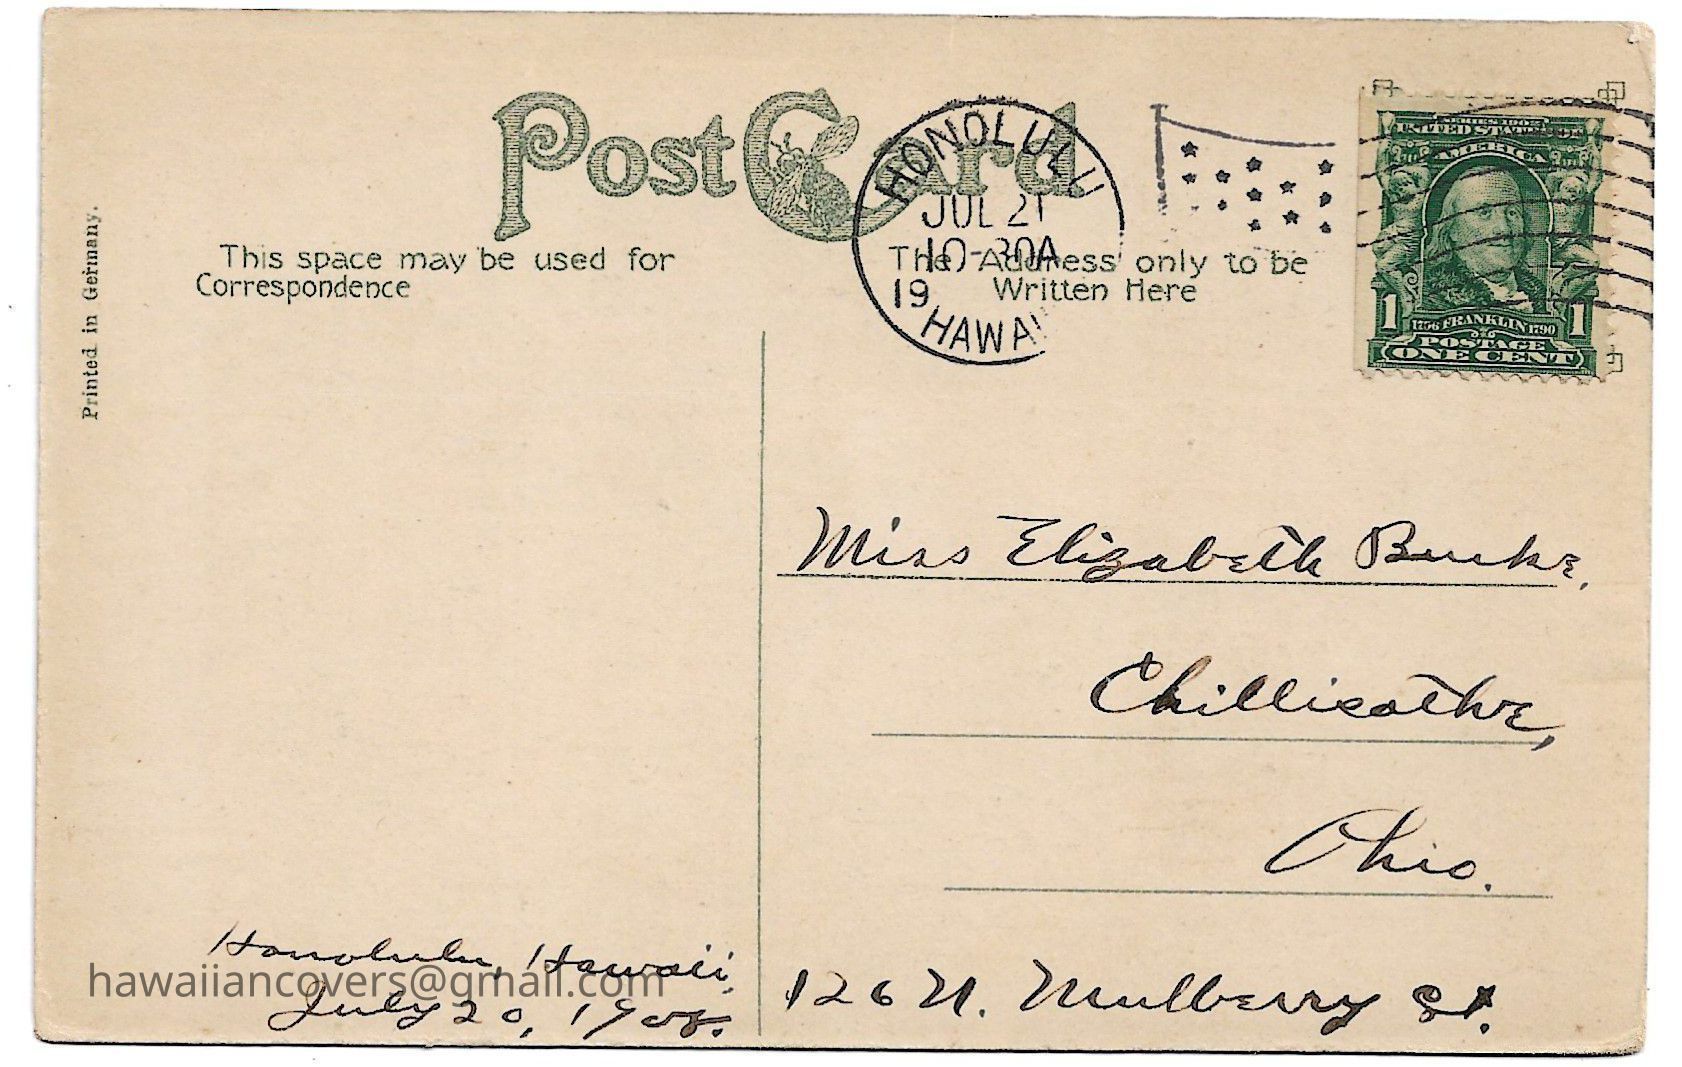 Post Card
This space may be used for
Correspondence
The Address only to be
Written Here
Printed in Germany.
HONOLULU
JUL 21
10-30A
19
HAWAII
SERIES 1902
UNITED STATES OF
AMERICA
1 1756 FRANKLIN 1790 1
POSTAGE
ONE CENT
Miss Elizabeth Burke,
Chillicothe,
Ohio.
126 N. Mulberry St.
Honolulu, Hawaii,
July 20, 1908.
hawaiiancovers@gmail.com